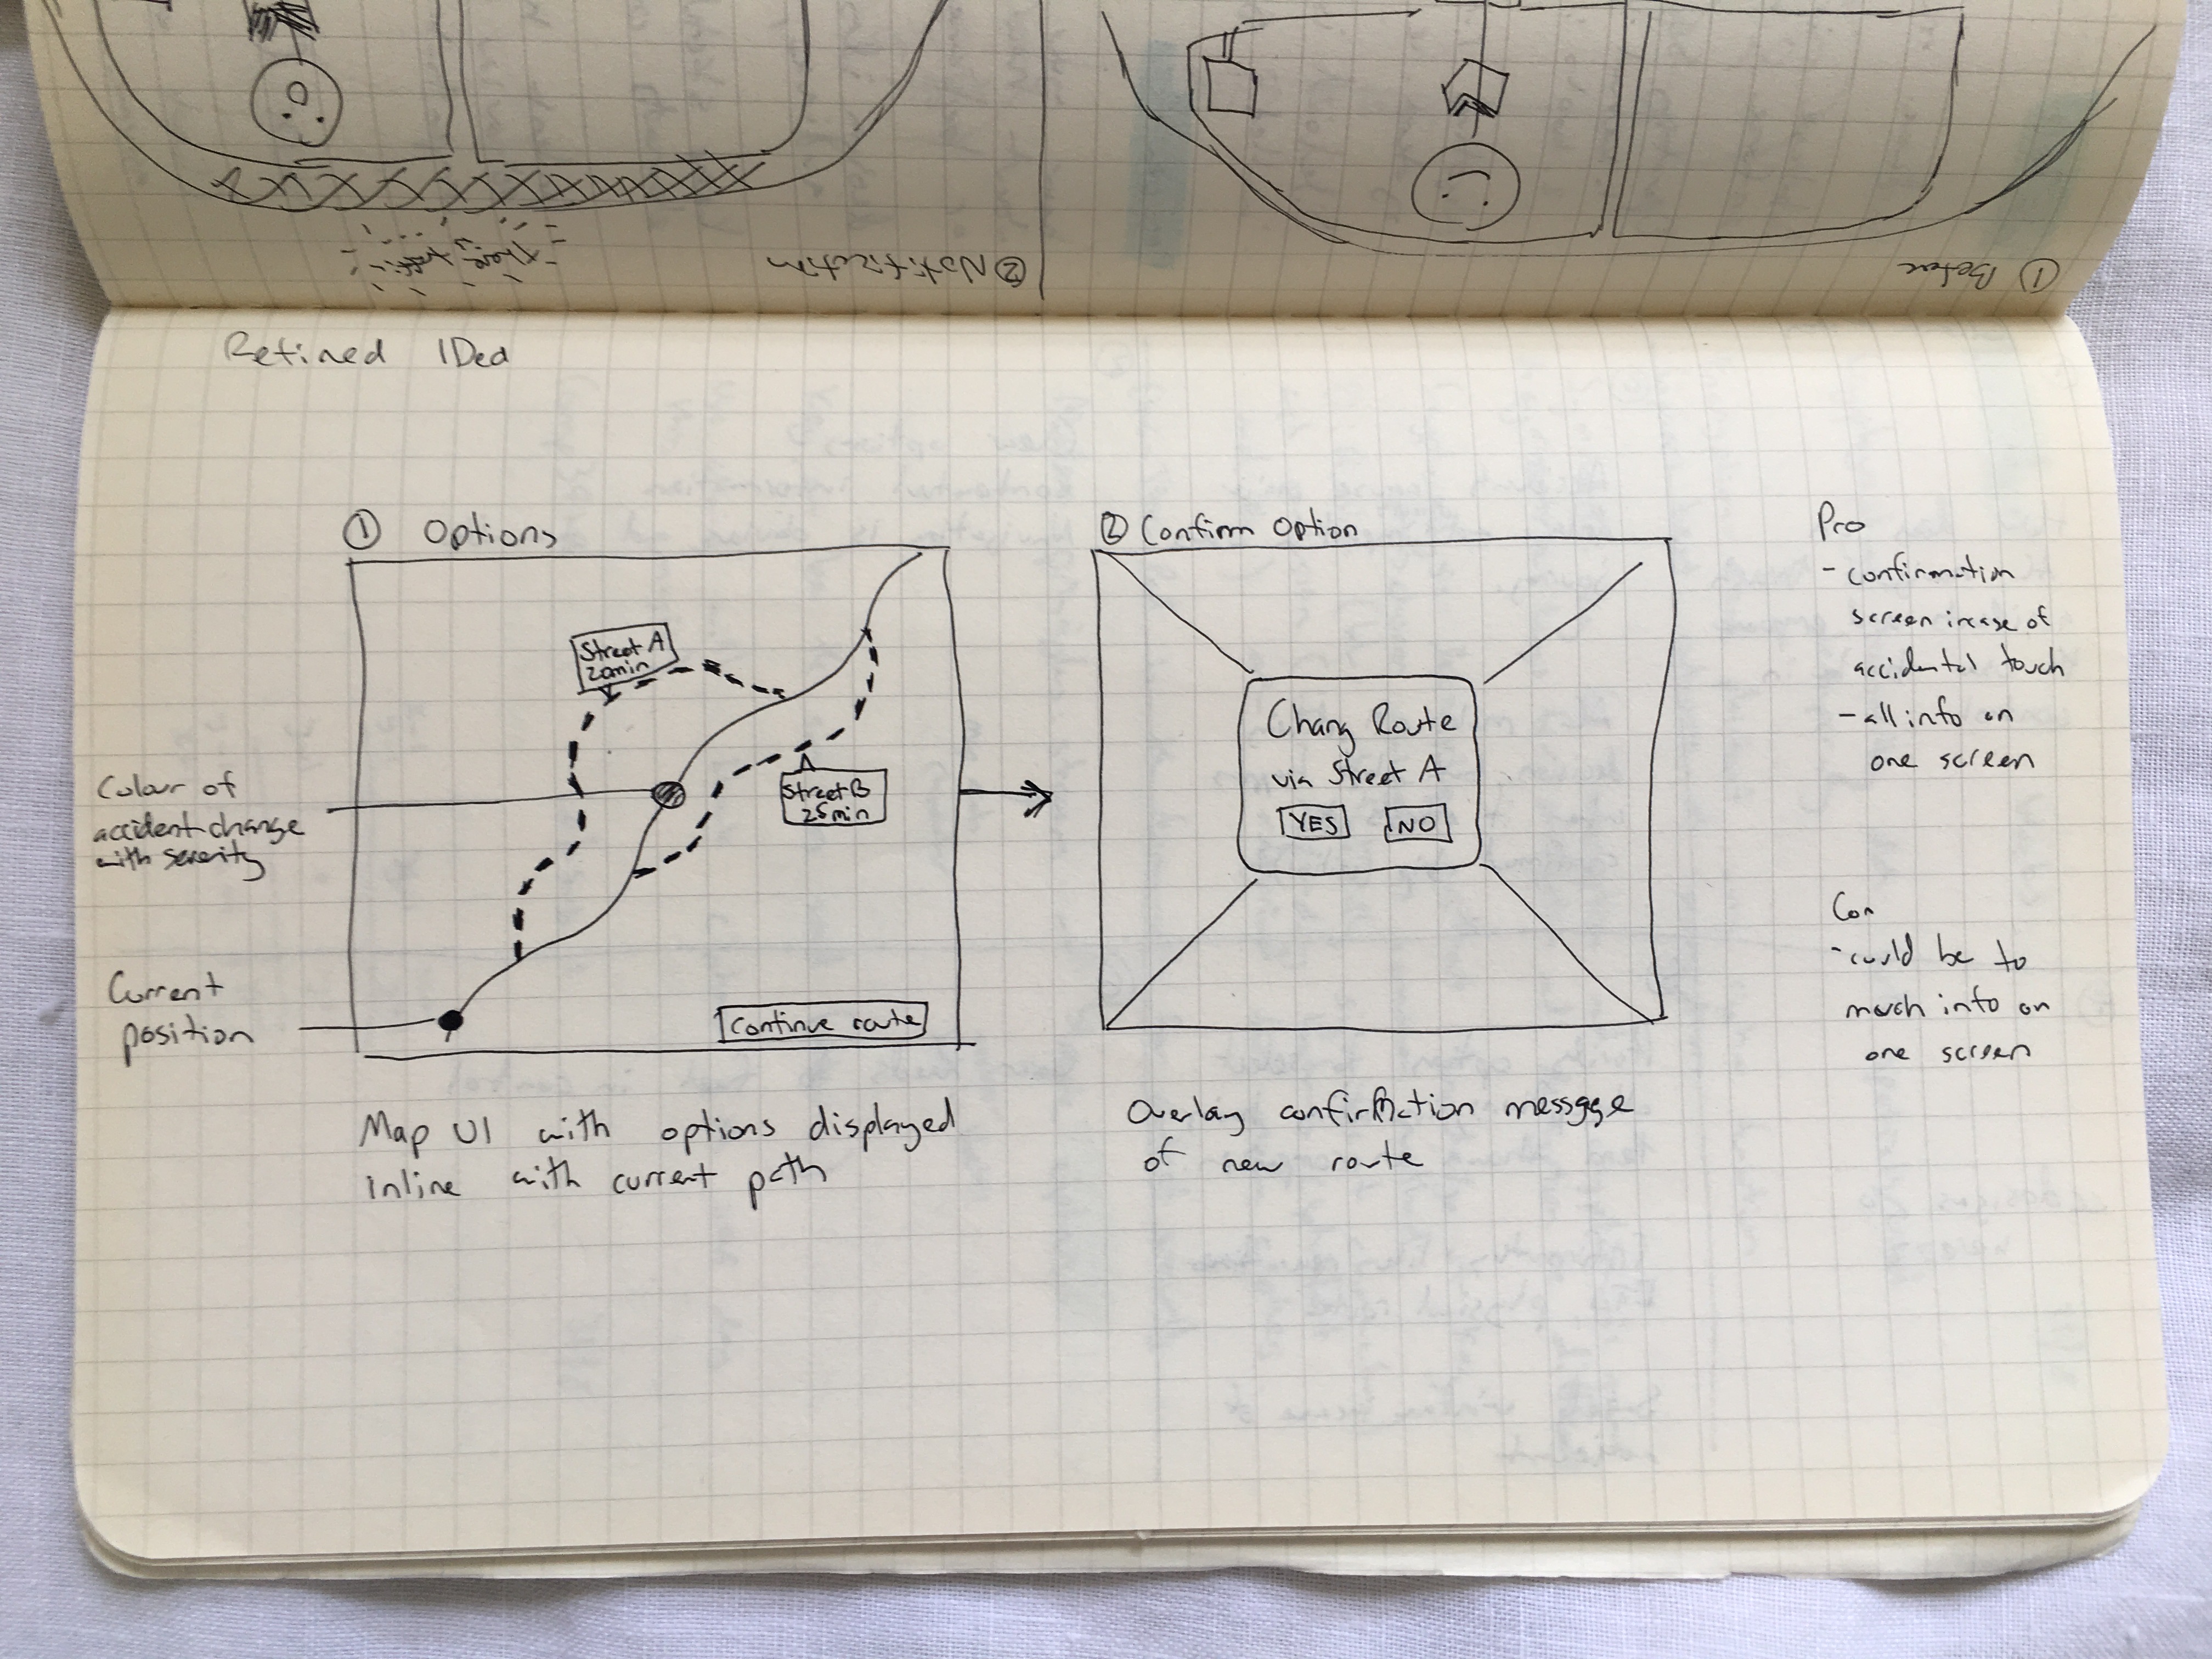 ① Before
② Notification
There
traffic
Refined IDea
① Options
Street A
20min
Street B
25min
Continue route
Colour of
accident change
with severity
Current
position
Map UI with options displayed
inline with current path
② Confirm Option
Chang Route
via Street A
YES NO
Overlay confirmation message
of new route
Pro
- confirmation
screen incase of
accidental touch
- all info on
one screen
Con
- could be to
much info on
one screen